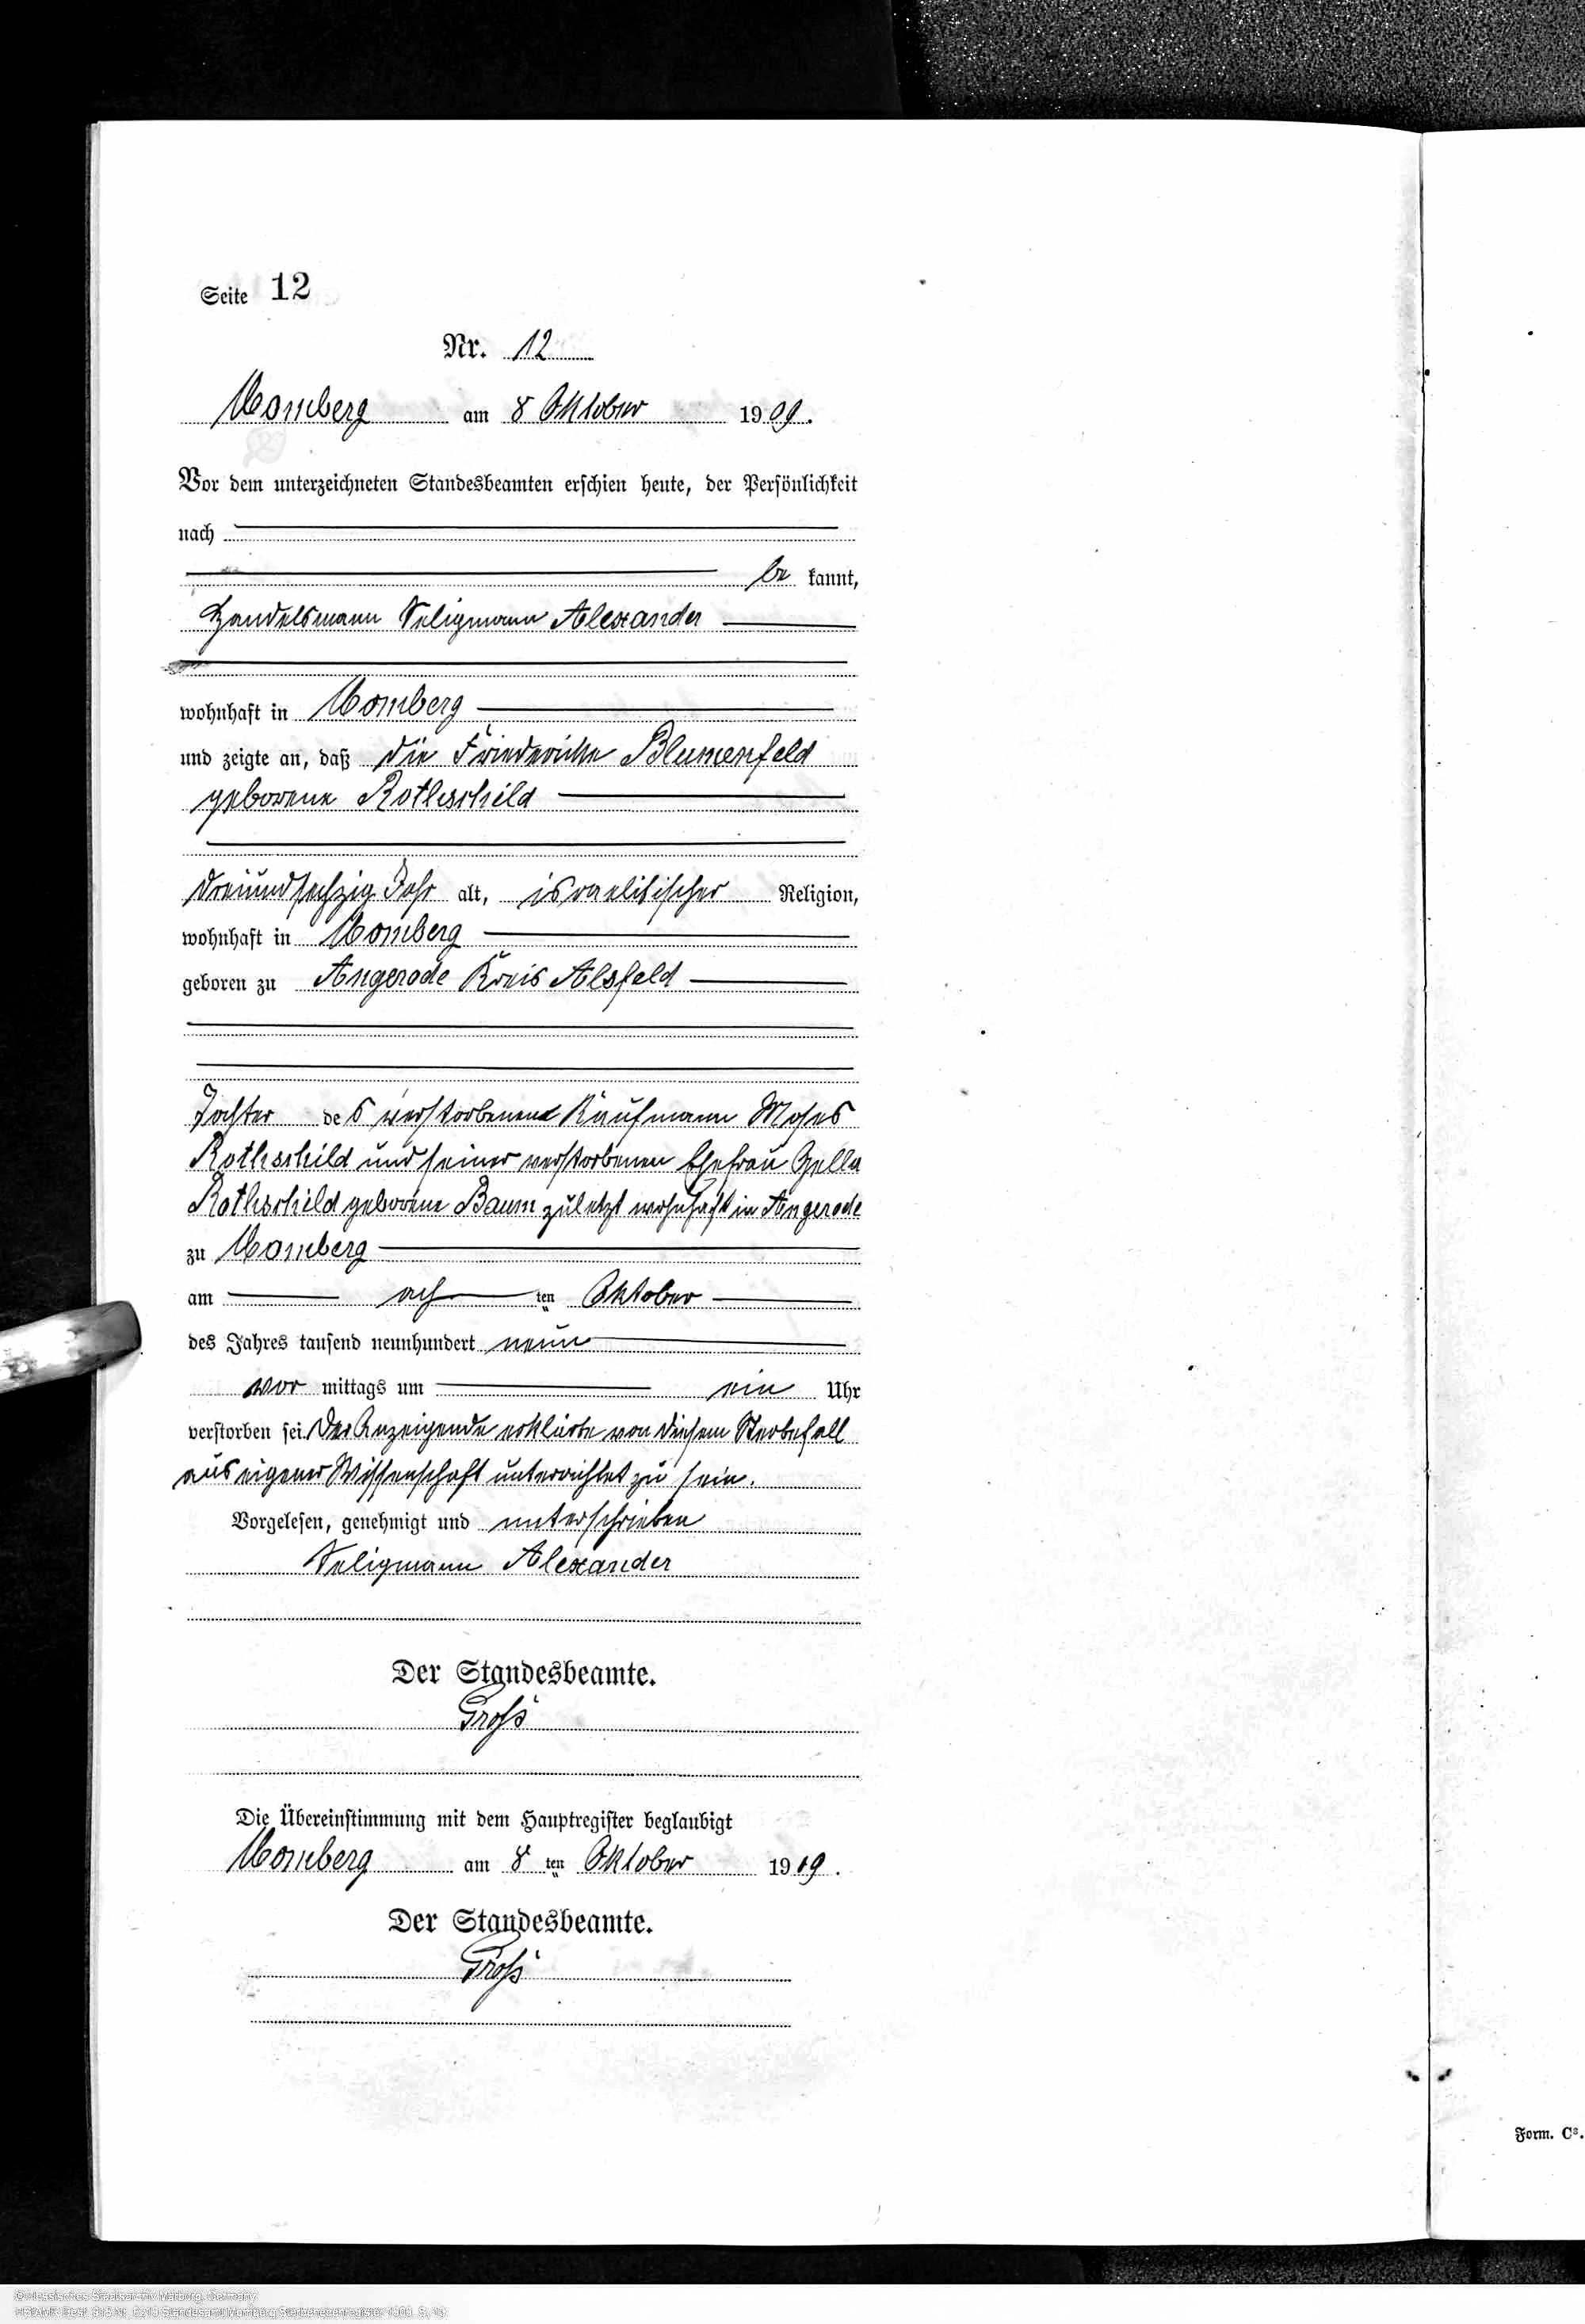 Seite 12
Nr. 12
Momberg am 8 Oktober 1909.
Vor dem unterzeichneten Standesbeamten erschien heute, der Persönlichkeit
nach
be kannt,
Handelsmann Seligmann Alexander
wohnhaft in Momberg
und zeigte an, daß die Friedericke Blumenfeld
geborene Rothschild
dreiundsechzig Jahr alt, israelitischer Religion,
wohnhaft in Momberg
geboren zu Angerode Kreis Alsfeld
Tochter des verstorbenen Kaufmann Moses
Rothschild und seiner verstorbenen Ehefrau Gella
Rothschild geborene Baum zuletzt wohnhaft in Angerode
zu Momberg
am ach ten Oktober
des Jahres tausend neunhundert neun
vor mittags um ein Uhr
verstorben sei. Der Anzeigende erklärte von diesem Sterbefall
aus eigener Wissenschaft unterrichtet zu sein.
Vorgelesen, genehmigt und unterschrieben
Seligmann Alexander
Der Standesbeamte.
Groß
Die Übereinstimmung mit dem Hauptregister beglaubigt
Momberg am 8 ten Oktober 1909.
Der Standesbeamte.
Groß
Form. C³.